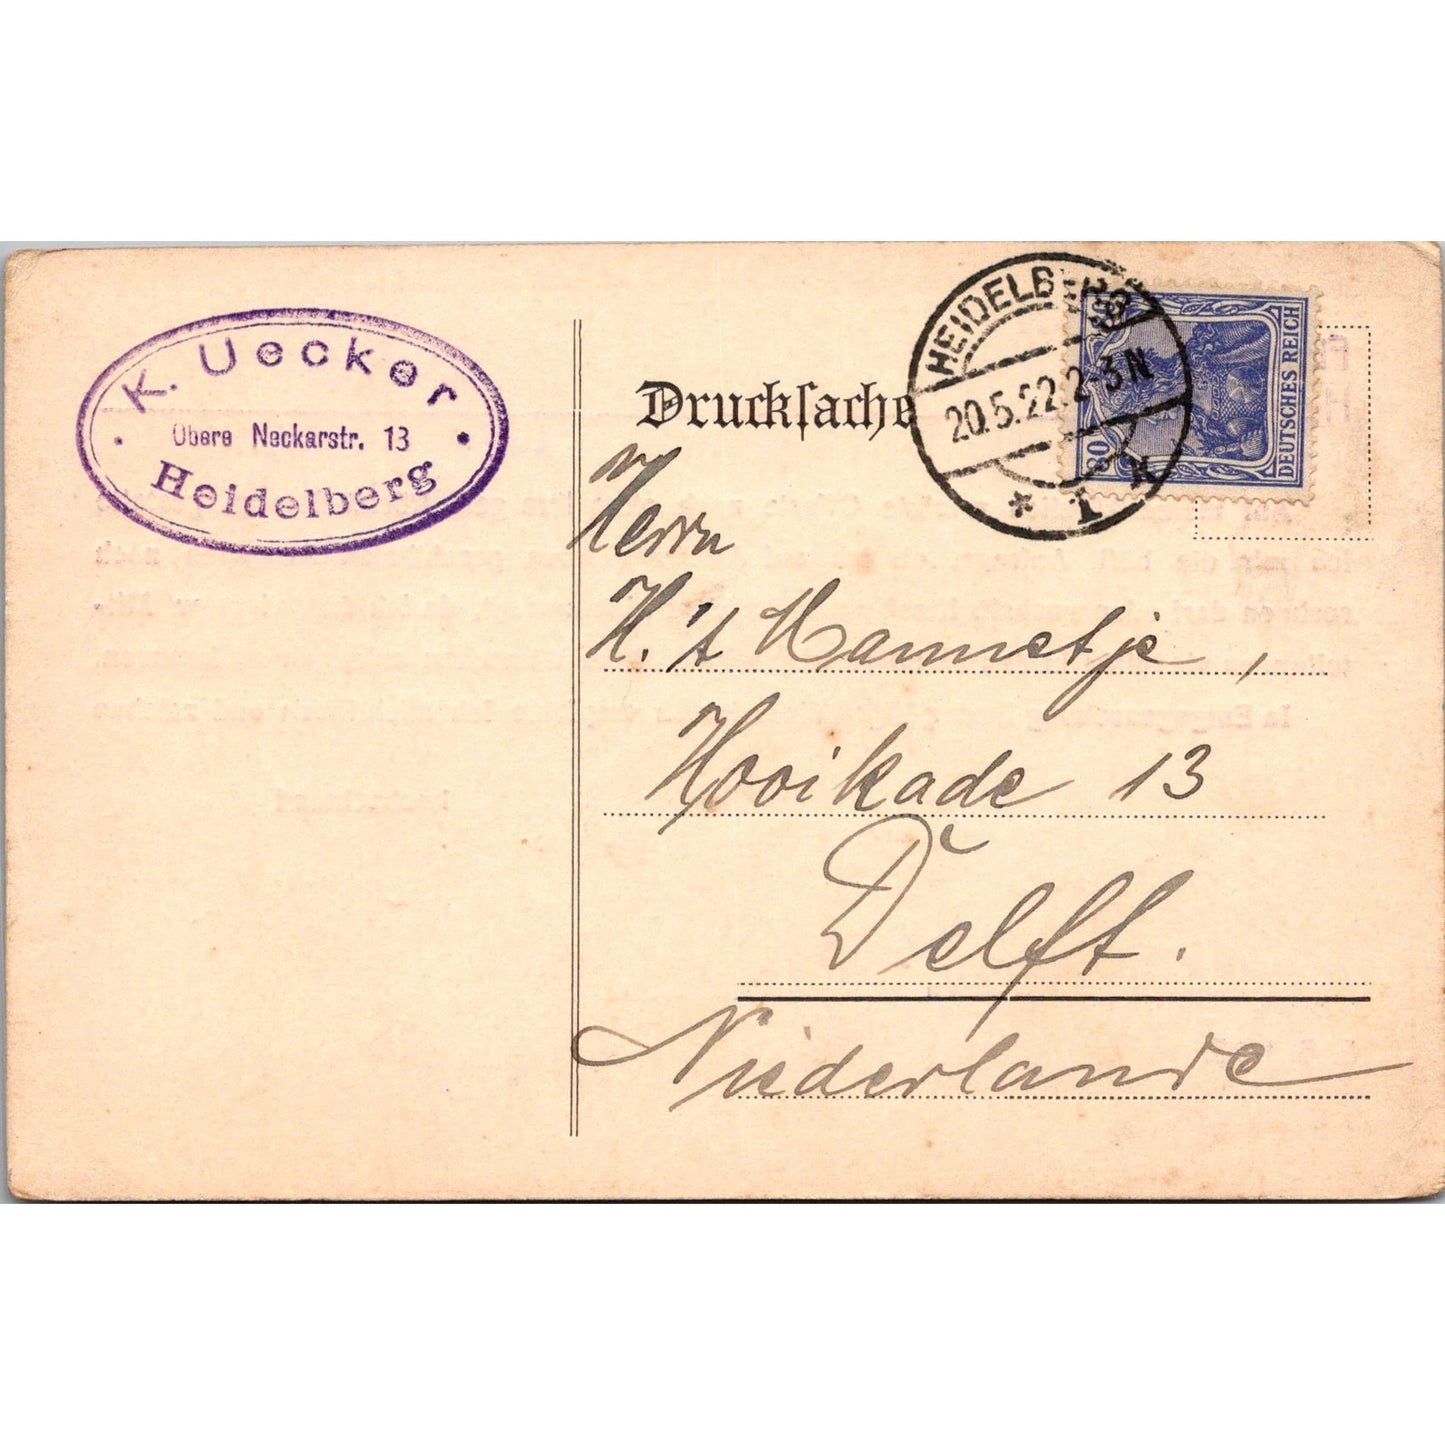 K. Uecker
Obere Neckarstr. 13
Heidelberg
Drucksache
HEIDELBERG
20.5.22.2-3N
* 1 k
80
DEUTSCHES REICH
Herrn
H. 't Mannetje,
Hooikade 13
Delft.
Niederlande